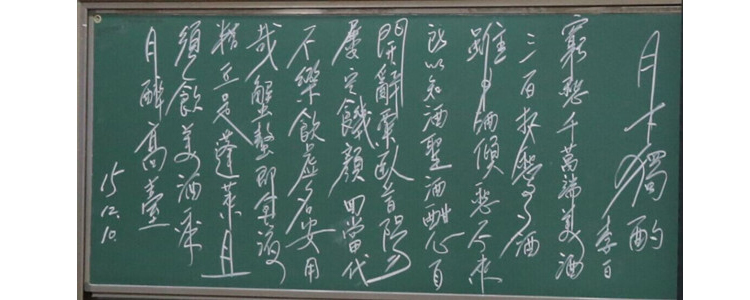 月下獨酌
李白
窮愁千萬端美酒
三百杯愁多酒
雖少酒傾愁不來
所以知酒聖酒酣心自
開辭粟臥首陽
屢空饑顏回當代
不樂飲虛名安用
哉蟹螯即金液
糟丘是蓬萊且
須飲美酒乘
月醉高臺
15.12.10.